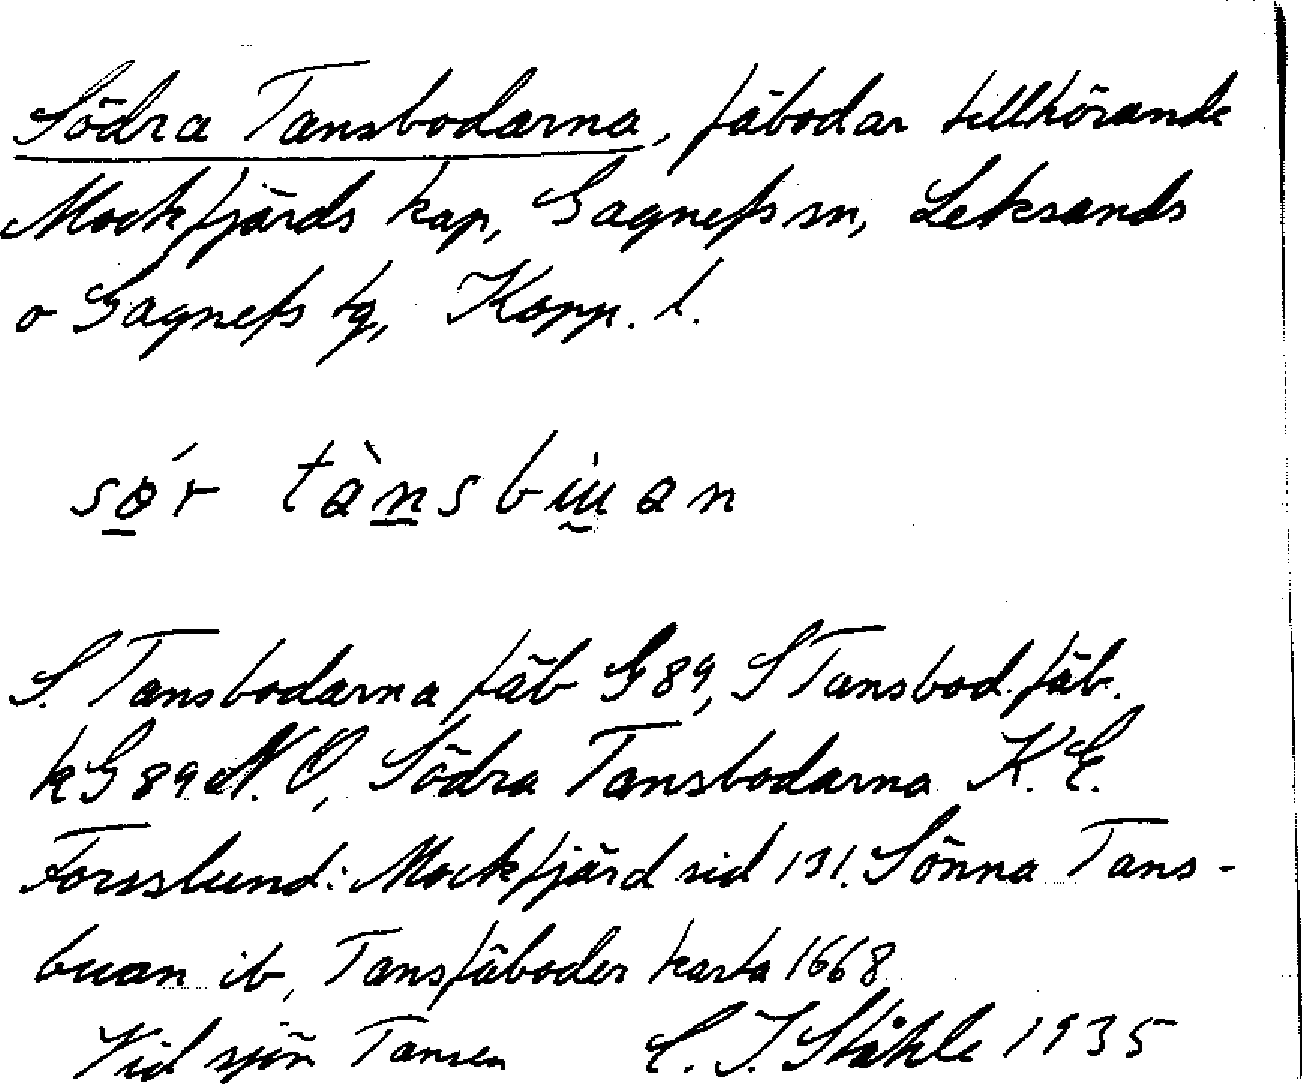 Södra Tansbodarna, fäbodar tillhörande
Mockfjärds kap, Gagnefs sn, Leksands
o Gagnefs tg, Kopp. l.
sǿ̱r tàn̲sbɯ̰an
S. Tansbodarna fäb G89, S Tansbod. fäb.
kG89 N.O, Södra Tansbodarna K.E.
Forsslund: Mockfjärd sid 131. Sönna Tans-
buan ib, Tansfäboder karta 1668
Vid sjön Tansen C. I. Ståhle 1935